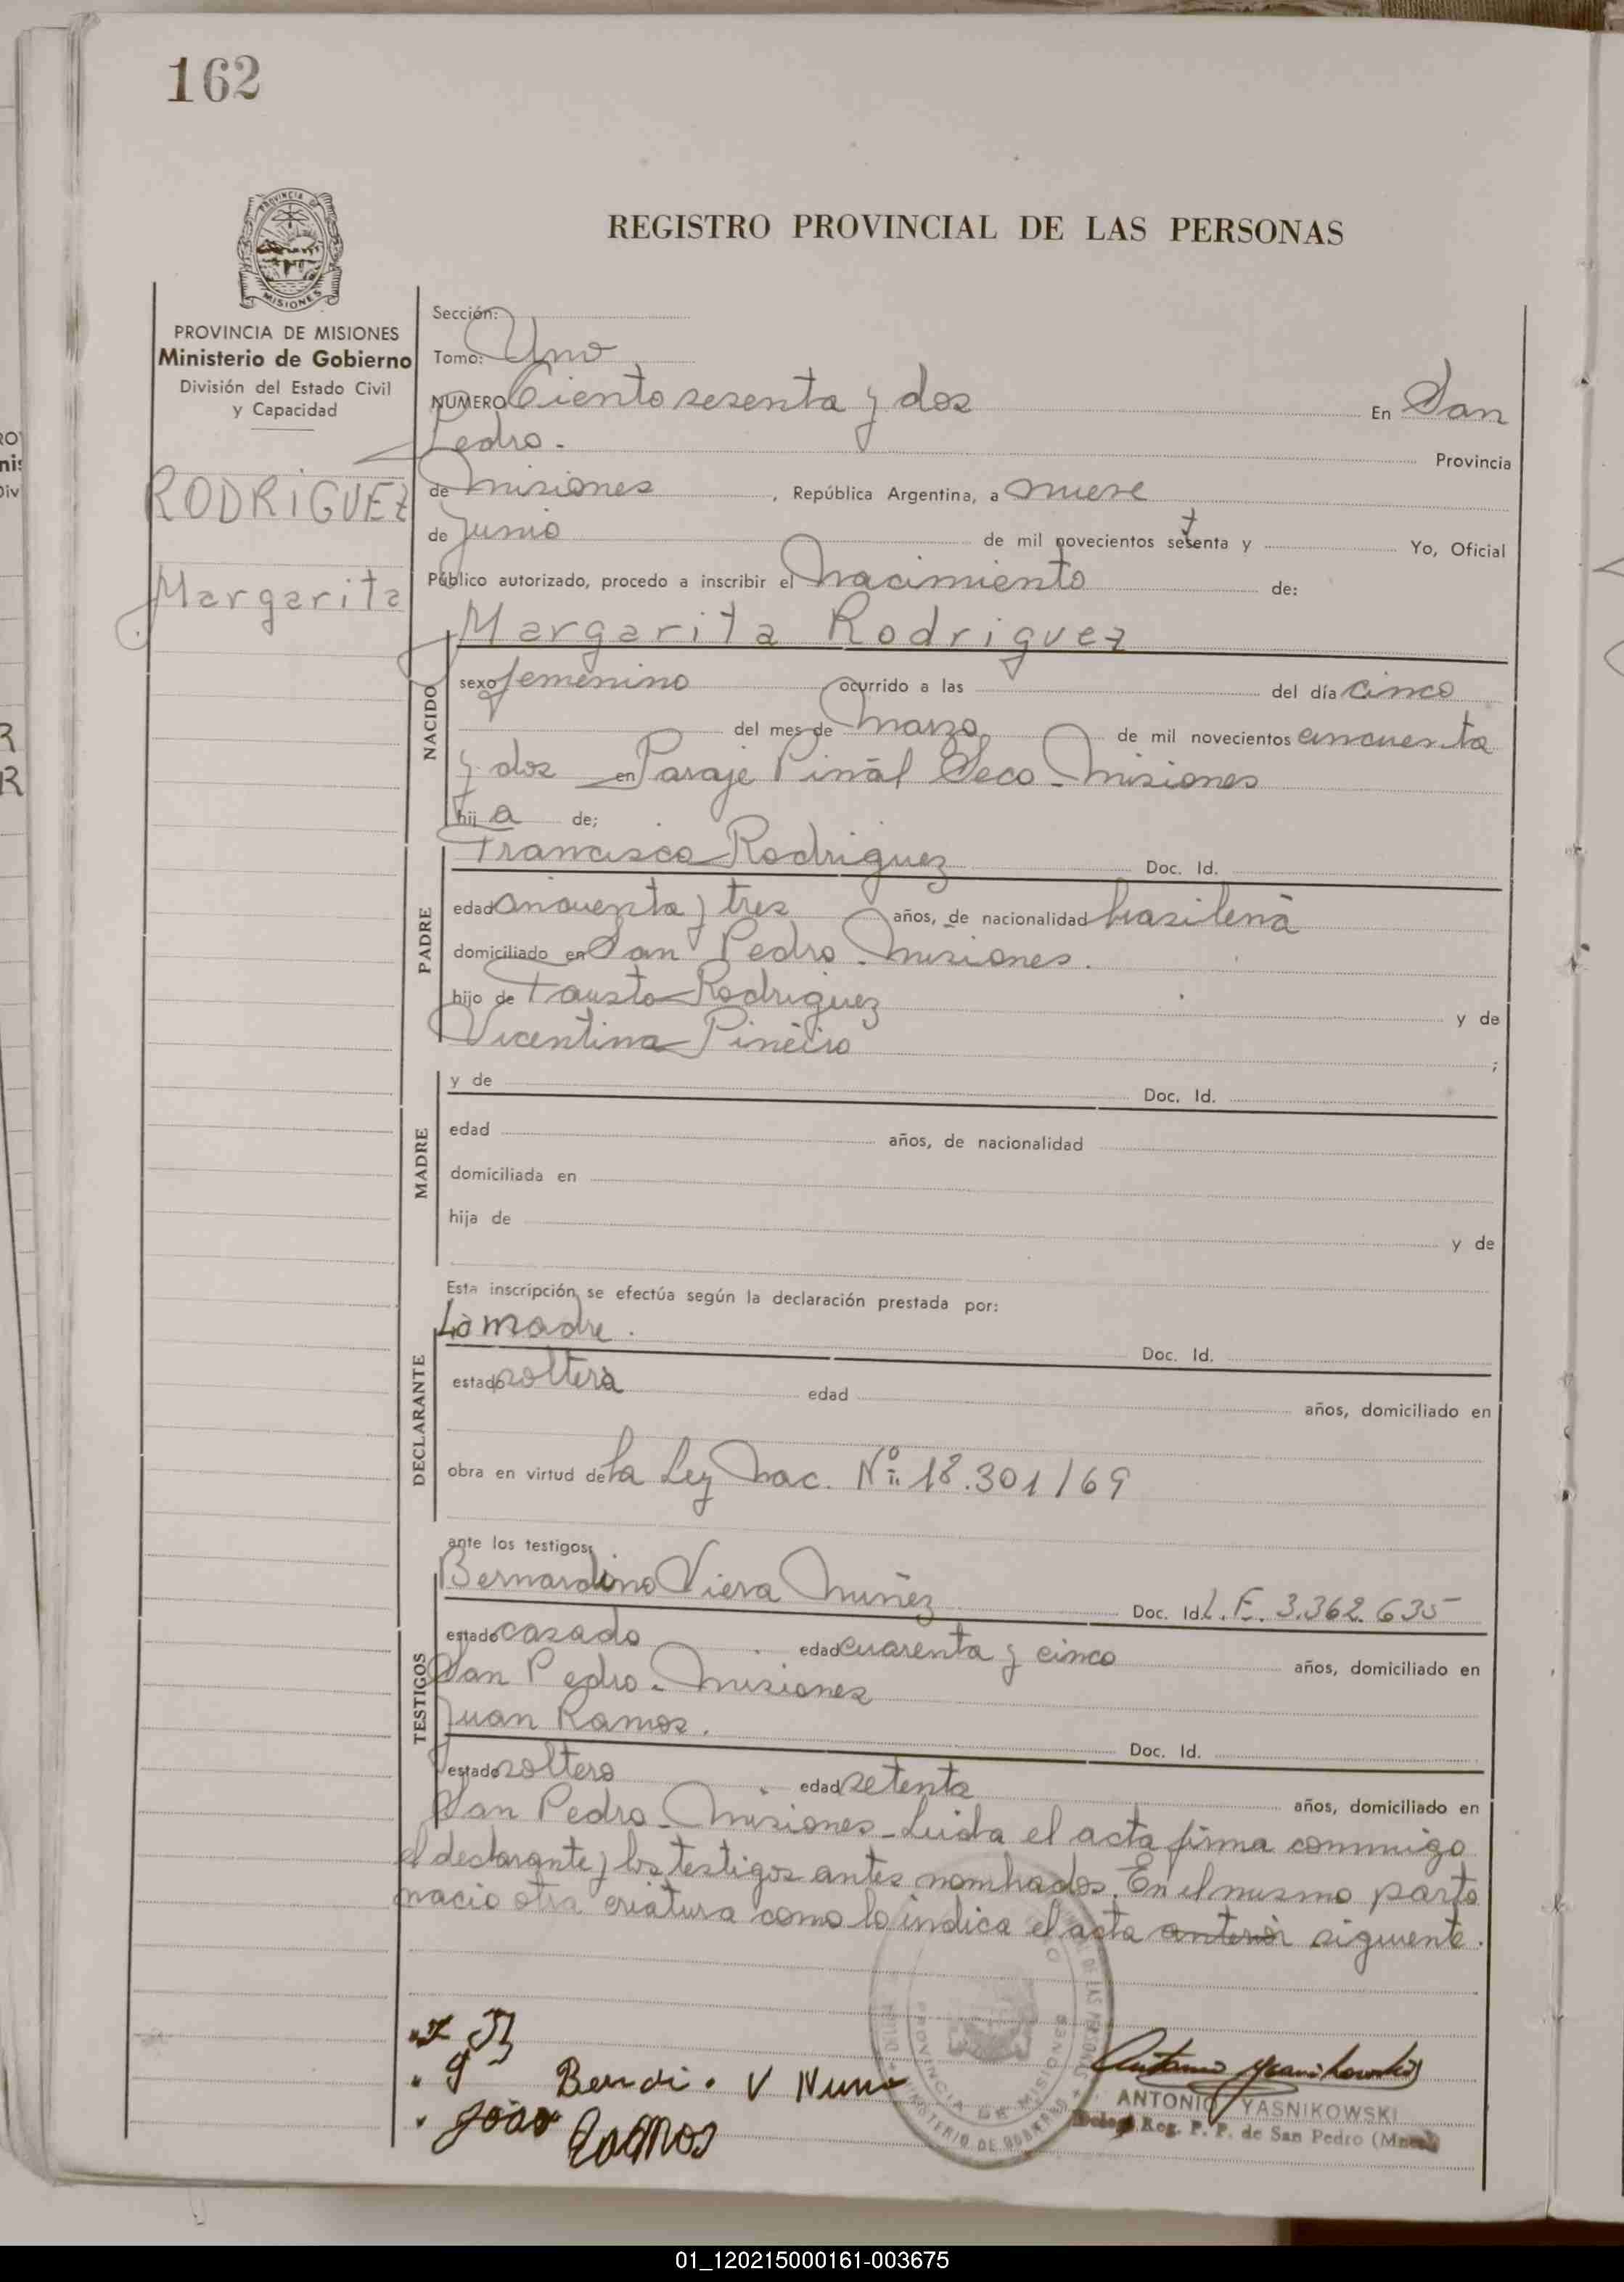 162
REGISTRO PROVINCIAL DE LAS PERSONAS
PROVINCIA DE MISIONES
Ministerio de Gobierno
División del Estado Civil
y Capacidad
RODRIGUEZ
Margarita
Sección:
Tomo: Uno
NUMERO Ciento sesenta y dos En San
Pedro. Provincia
de Misiones, República Argentina, a nueve
de Junio de mil novecientos setenta y Yo, Oficial
Público autorizado, procedo a inscribir el nacimiento de:
Margarita Rodriguez
NACIDO
sexo femenino ocurrido a las del día cinco
del mes de Marzo de mil novecientos cincuenta
y dos en Paraje Pinál Seco - Misiones
hij a de;
PADRE
Francisco Rodriguez Doc. Id.
edad cincuenta y tres años, de nacionalidad brasileña
domiciliado en San Pedro - Misiones.
hijo de Fausto Rodriguez y de
Vicentina Pinéiro ;
MADRE
y de Doc. Id.
edad años, de nacionalidad
domiciliada en
hija de y de
Esta inscripción se efectúa según la declaración prestada por:
DECLARANTE
La madre. Doc. Id.
estado soltera edad años, domiciliado en
obra en virtud de la Ley Nac. Nº: 18.301/69
ante los testigos:
TESTIGOS
Bernardino Viera Nuñez Doc. Id. L.E. 3.362.635
estado casado edad cuarenta y cinco años, domiciliado en
San Pedro - Misiones
Juan Ramos. Doc. Id.
estado soltero edad setenta años, domiciliado en
San Pedro - Misiones - Leida el acta firma conmigo
el declarante y los testigos antes nombrados. En el mismo parto
nacio otra criatura como lo indica el acta anterior siguiente.
Bendi. V Nune
João Ramos
ANTONIO YASNIKOWSKI
Deleg. Reg. P. P. de San Pedro (Mnes)
PROVINCIA DE MISIONES
MINISTERIO DE GOBIERNO
01_120215000161-003675